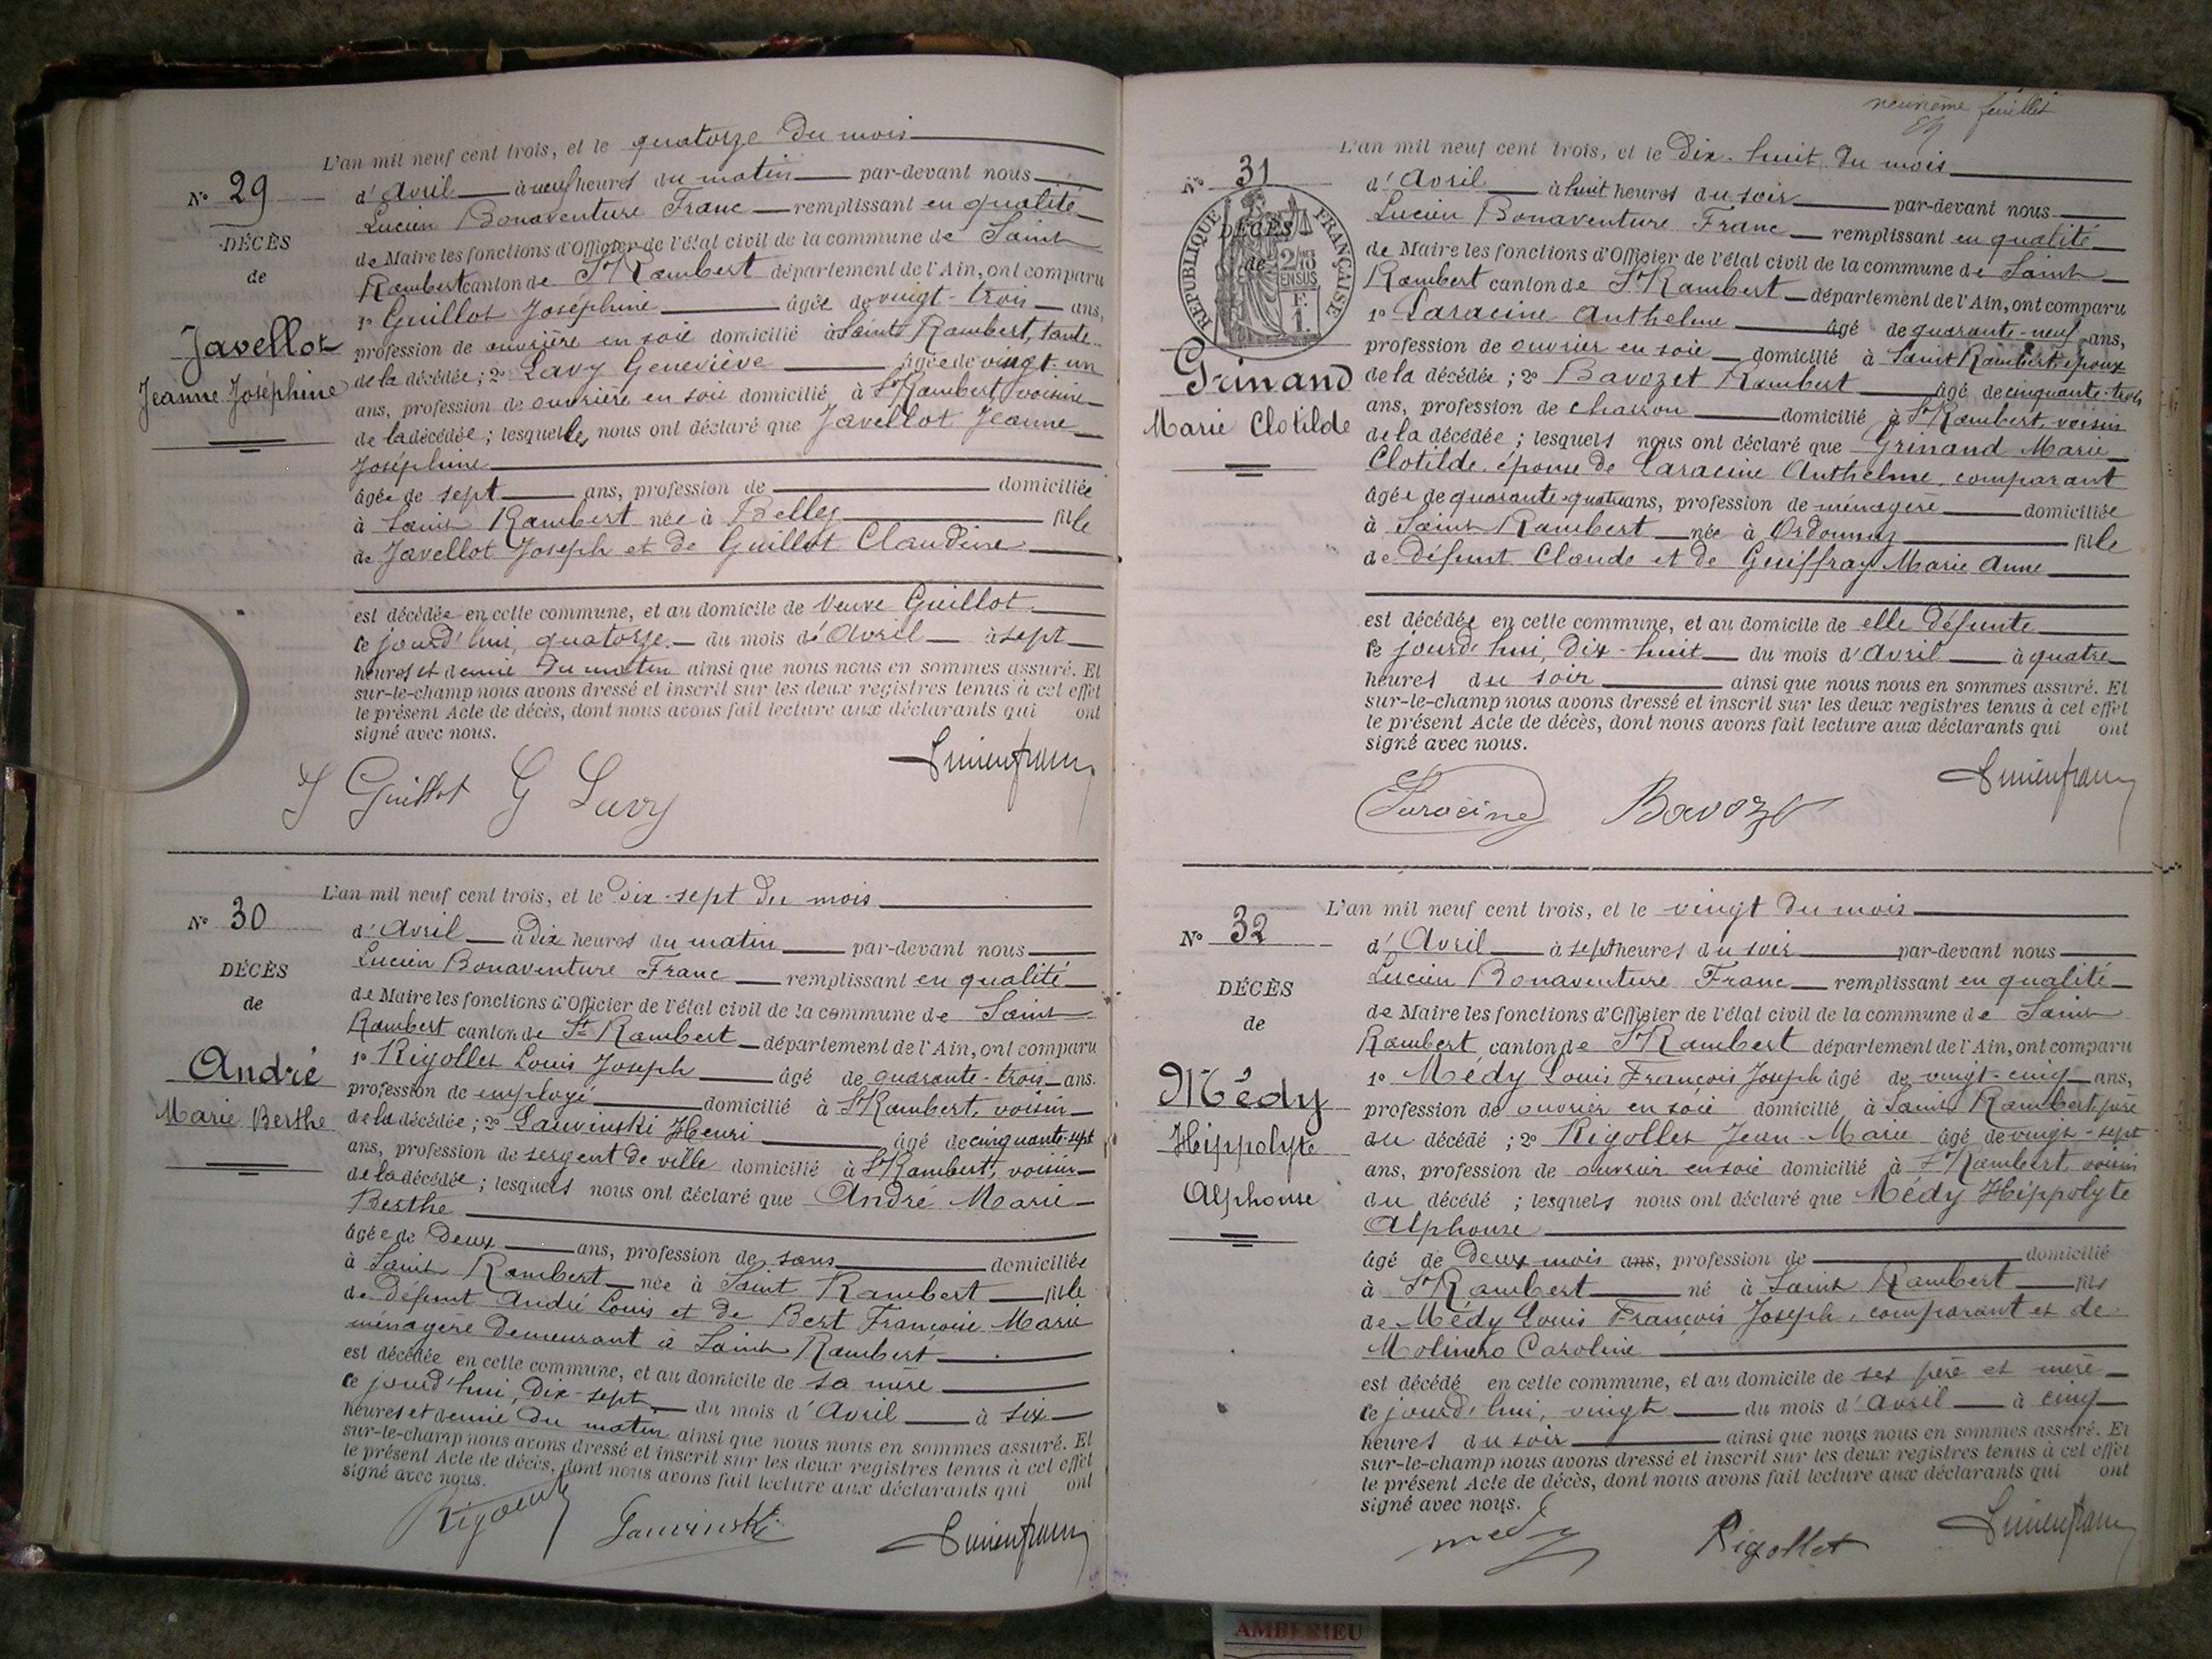 L'an mil neuf cent trois, et le quatorze du mois
N° 29
d'Avril à neuf heures du matin par-devant nous
Lucien Bonaventure Franc remplissant en qualité
DÉCÈS
de Maire les fonctions d'Officier de l'état civil de la commune de Saint
de
Rambert canton de St Rambert département de l'Ain, ont comparu
1° Guillot Joséphine âgée de vingt-trois ans,
Javellot
profession de ouvrière en soie domicilié à Saint Rambert, tante
Jeanne Joséphine
de la décédée; 2° Lavy Geneviève âgée de vingt-un
ans, profession de ouvrière en soie domicilié à St Rambert, voisine
de la décédée; lesquelles nous ont déclaré que Javellot Jeanne
Joséphine
âgée de sept ans, profession de domiciliée
à Saint Rambert née à Belley fille
de Javellot Joseph et de Guillot Claudine
est décédée en cette commune, et au domicile de Veuve Guillot
ce jourd'hui, quatorze du mois d'Avril à sept
heures et demie du matin ainsi que nous nous en sommes assuré. Et
sur-le-champ nous avons dressé et inscrit sur les deux registres tenus à cet effet
le présent Acte de décès, dont nous avons fait lecture aux déclarants qui ont
signé avec nous.
J Guillot G Lavy
L'an mil neuf cent trois, et le dix-sept du mois
N° 30
d'Avril à dix heures du matin par-devant nous
Lucien Bonaventure Franc remplissant en qualité
DÉCÈS
de Maire les fonctions d'Officier de l'état civil de la commune de Saint
de
Rambert canton de St Rambert département de l'Ain, ont comparu
1° Rigollet Louis Joseph âgé de quarante-trois ans.
André
profession de employé domicilié à St Rambert, voisin
Marie Berthe
de la décédée; 2° Lauvinski Henri âgé de cinquante-sept
ans, profession de sergent de ville domicilié à St Rambert, voisin
de la décédée; lesquels nous ont déclaré que André Marie
Berthe
âgée de deux ans, profession de sans domiciliée
à Saint Rambert née à Saint Rambert fille
de défunt André Louis et de Bert Françoise Marie
ménagère demeurant à Saint Rambert
est décédée en cette commune, et au domicile de sa mère
ce jourd'hui, dix-sept du mois d'Avril à six
heures et demie du matin ainsi que nous nous en sommes assuré. Et
sur-le-champ nous avons dressé et inscrit sur les deux registres tenus à cet effet
le présent Acte de décès, dont nous avons fait lecture aux déclarants qui ont
signé avec nous.
neuvième feuillet
L'an mil neuf cent trois, et le dix-huit du mois
N° 31
d'Avril à huit heures du soir par-devant nous
Lucien Bonaventure Franc remplissant en qualité
RÉPUBLIQUE FRANÇAISE
DÉCÈS
de Maire les fonctions d'Officier de l'état civil de la commune de Saint
de
Rambert canton de St Rambert département de l'Ain, ont comparu
1° Laracine Anthelme âgé de quarante-neuf ans,
profession de ouvrier en soie domicilié à Saint Rambert, époux
Grinand
de la décédée; 2° Bavozet Rambert âgé de cinquante-trois
Marie Clotilde
ans, profession de charron domicilié à St Rambert, voisin
de la décédée; lesquels nous ont déclaré que Grinand Marie
Clotilde, épouse de Laracine Anthelme, comparant
âgée de quarante-quatre ans, profession de ménagère domiciliée
à Saint Rambert née à Ordonnaz fille
de défunt Claude et de Guiffray Marie Anne
est décédée en cette commune, et au domicile de elle défunte
ce jourd'hui, dix-huit du mois d'Avril à quatre
heures du soir ainsi que nous nous en sommes assuré. Et
sur-le-champ nous avons dressé et inscrit sur les deux registres tenus à cet effet
le présent Acte de décès, dont nous avons fait lecture aux déclarants qui ont
signé avec nous.
Laracine
L'an mil neuf cent trois, et le vingt du mois
N° 32
d'Avril à sept heures du soir par-devant nous
Lucien Bonaventure Franc remplissant en qualité
DÉCÈS
de Maire les fonctions d'Officier de l'état civil de la commune de Saint
de
Rambert canton de St Rambert département de l'Ain, ont comparu
1° Médy Louis François Joseph âgé de vingt-cinq ans,
Médy
profession de ouvrier en soie domicilié à Saint Rambert, père
Hippolyte
du décédé; 2° Rigollet Jean-Marie âgé de vingt-sept
ans, profession de ouvrier en soie domicilié à St Rambert, voisin
Alphonse
du décédé; lesquels nous ont déclaré que Médy Hippolyte
Alphonse
âgé de deux mois ans, profession de domicilié
à St Rambert né à Saint Rambert fils
de Médy Louis François Joseph, comparant et de
Molinero Caroline
est décédé en cette commune, et au domicile de ses père et mère
ce jourd'hui, vingt du mois d'Avril à cinq
heures du soir ainsi que nous nous en sommes assuré. Et
sur-le-champ nous avons dressé et inscrit sur les deux registres tenus à cet effet
le présent Acte de décès, dont nous avons fait lecture aux déclarants qui ont
signé avec nous.
medy Rigollet
AMBERIEU